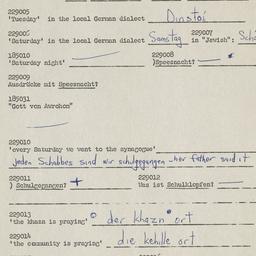 229005
'Tuesday' in the local German dialect Dinstoi
229006 229007
'Saturday' in the local German dialect Samstag in "Jewish":
185010 229008
'Saturday night' )Speesnacht?
229009
Ausdrücke mit Speesnacht?
185031
"Gott von Avrohom"
229010
'every Saturday we went to the synagogue'
jeden Schabbes sind wir schulgegangen her father said it
229011 229012
) Schulgegangen? + Was ist Schulklopfen?
229013
'the khazn is praying' der khazn ort
229014
'the community is praying' die kehille ort